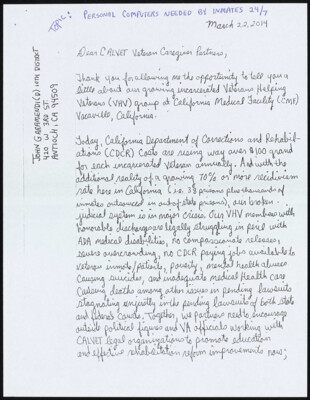 TOPIC: PERSONAL COMPUTERS NEEDED BY INMATES 24/7
March 22, 2014
JOHN GARAMENDI (D) 11TH DISTRICT
420 W 3RD ST
ANTIOCH, CA 94509
Dear CALVET Veteran Caregiver Partners,
Thank you for allowing me the opportunity to tell you a
little about our growing incarcerated Veterans Helping
Veterans (VHV) group at California Medical Facility (CMF)
Vacaville, California.
Today, California Department of Corrections and Rehabil-
itations (CDCR) Costs are rising way over $100 grand
for each incarcerated Veteran annually. And with the
additional reality of a growing 70% or more recidivism
rate here in California (i.e. 33 prisons plus thousands of
inmates outsourced in out of state prisons), our broken
judicial system is in major crises. Our VHV members with
honorable discharges are legally struggling in peril with
ADA medical disabilities, no compassionate releases,
severe overcrowding, no CDCR paying jobs available to
veteran inmate/patients, poverty, mental health abuses
causing suicides, and inadequate medical Health care
causing deaths among other issues in pending lawsuits
stagnating unjustly in the pending lawsuits of both state
and federal courts. Together, we partners need to encourage
outside political figures and VA officials working with
CALVET legal organizations to promote education
and effective rehabilitation reform improvements now;